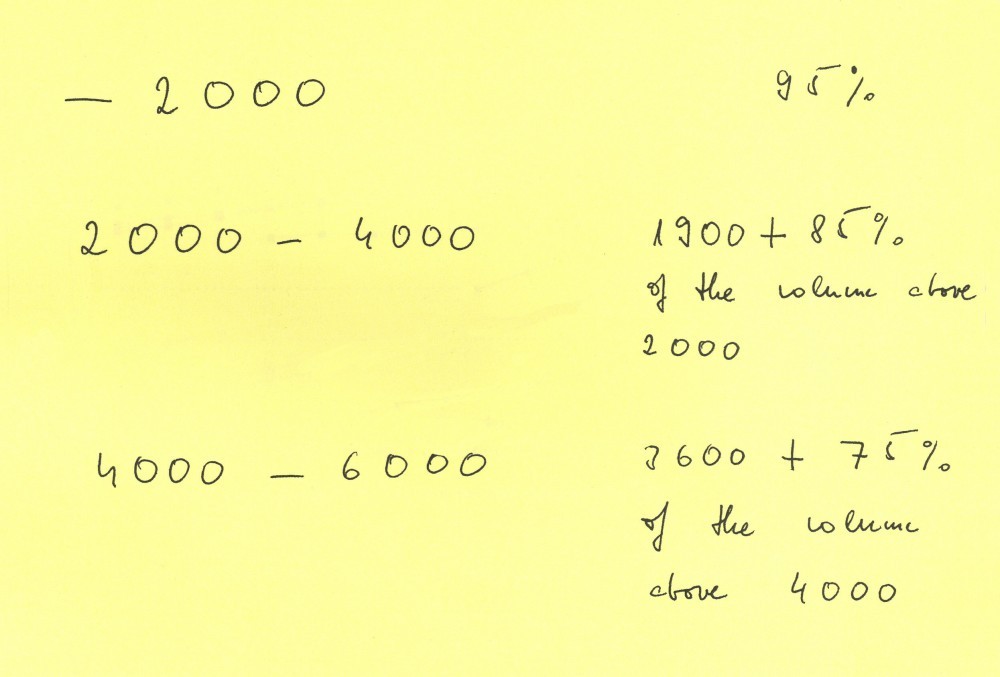 — 2000 95%
2000 - 4000 1900 + 85%
of the volume above
2000
4000 - 6000 3600 + 75%
of the volume
above 4000